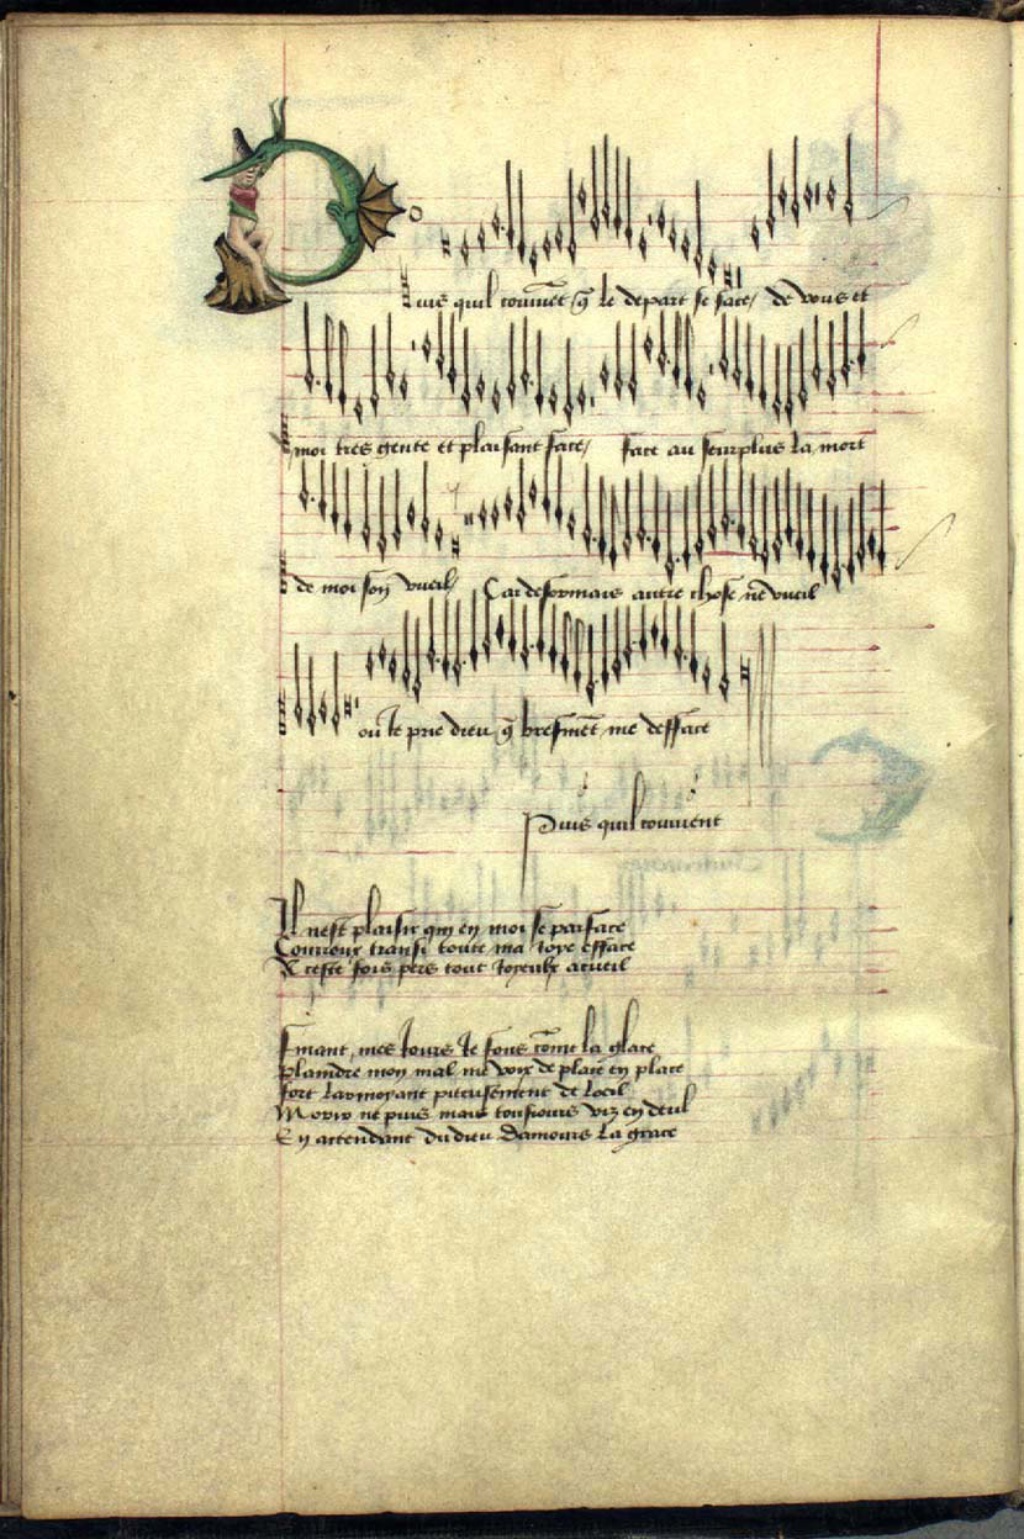 Puis quil convient q̃ le depart se face / de vous et
moi tres gente et plaisant face / face au seurplus la mort
de moi son vueil / Car desormais autre chose ne vueil
ou ie prie dieu q̃ briefmẽt me defface
Puis quil convient
Il nest plaisir qui en moi se parface
Courroux transi toute ma ioye efface
A ceste fois pers tout ioyeulx acueil
Finant mes iours ie fons cõme la glace
Plaindre mon mal me voix de place en place
fort larmoyant piteusement de loeil
Morir ne puis mais tousiours viz en deul
En attendant du dieu damours la grace